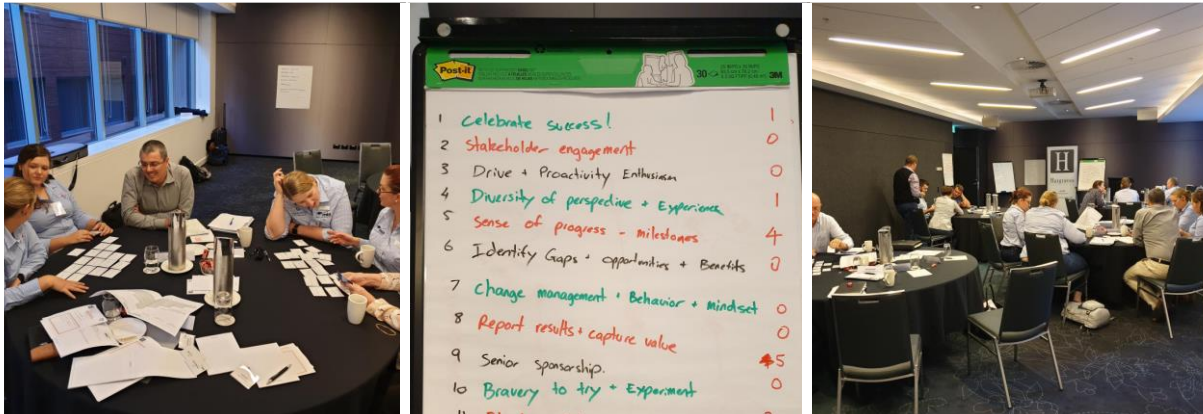 Post-it
30
3M
1 Celebrate success! 1
2 Stakeholder engagement 0
3 Drive + Proactivity Enthusiasm 0
4 Diversity of perspective + Experience 1
5 Sense of progress - milestones 4
6 Identify Gaps + opportunities + Benefits 0
7 Change management + Behavior + mindset 0
8 Report results + capture value 0
9 Senior sponsorship. 5
10 Bravery to try + Experiment 0
11
H